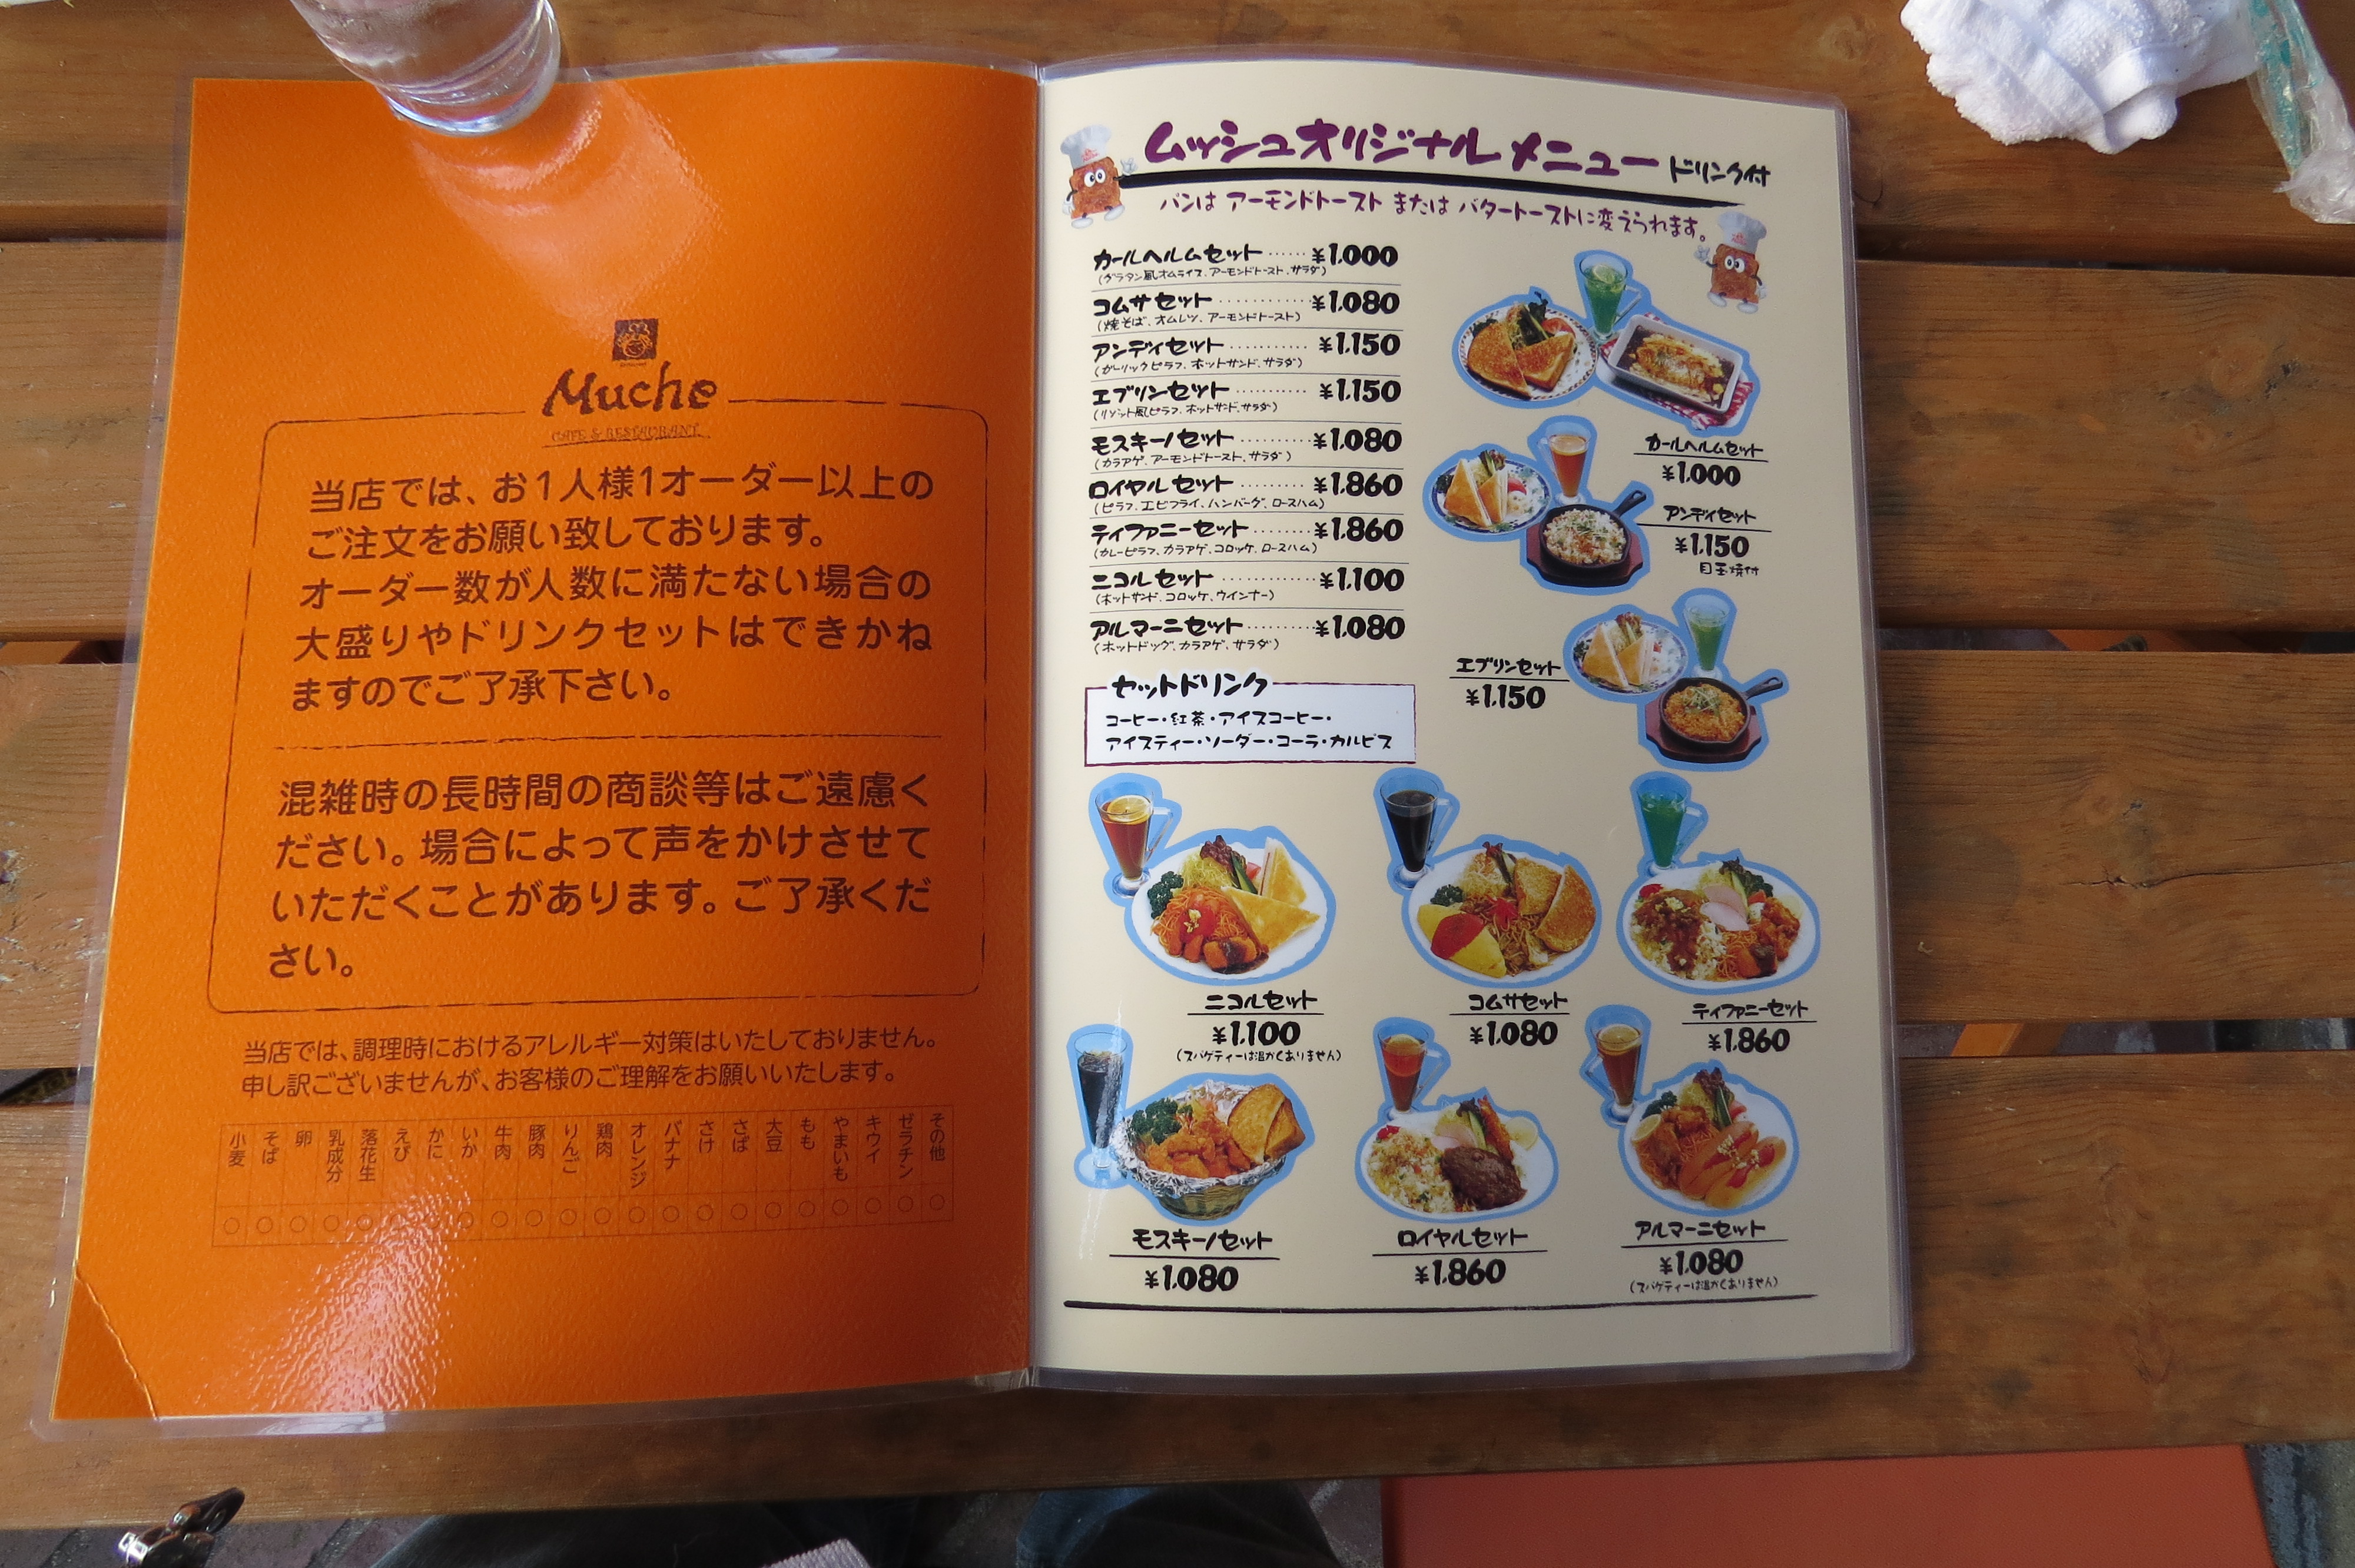 Muche
CAFE & RESTAURANT
当店では、お1人様1オーダー以上の
ご注文をお願い致しております。
オーダー数が人数に満たない場合の
大盛りやドリンクセットはできかね
ますのでご了承下さい。
混雑時の長時間の商談等はご遠慮く
ださい。場合によって声をかけさせて
いただくことがあります。ご了承くだ
さい。
当店では、調理時におけるアレルギー対策はいたしておりません。
申し訳ございませんが、お客様のご理解をお願いいたします。
小麦 そば 卵 乳成分 落花生 えび かに いか 牛肉 豚肉 りんご 鶏肉 オレンジ バナナ さけ さば 大豆 もも やまいも キウイ ゼラチン その他
○ ○ ○ ○ ○ ○ ○ ○ ○ ○ ○ ○ ○ ○ ○ ○ ○ ○ ○ ○ ○ ○
ムッシュオリジナルメニュー ドリンク付
パンは アーモンドトースト または バタートーストに変えられます。
カールヘルムセット ······ ¥1.000
(グラタン風オムライス、アーモンドトースト、サラダ)
コムサセット ············ ¥1.080
(焼そば、オムレツ、アーモンドトースト)
アンディセット ··········· ¥1.150
(ガーリックピラフ、ホットサンド、サラダ)
エブリンセット ·········· ¥1.150
(リゾット風ピラフ、ホットサンド、サラダ)
モスキーノセット ········· ¥1.080
(カラアゲ、アーモンドトースト、サラダ)
ロイヤルセット ·········· ¥1.860
(ピラフ、エビフライ、ハンバーグ、ロースハム)
ティファニーセット ········ ¥1.860
(カレーピラフ、カラアゲ、コロッケ、ロースハム)
ニコルセット ············ ¥1.100
(ホットサンド、コロッケ、ウインナー)
アルマーニセット ········· ¥1.080
(ホットドッグ、カラアゲ、サラダ)
セットドリンク
コーヒー・紅茶・アイスコーヒー・
アイスティー・ソーダー・コーラ・カルピス
カールヘルムセット
¥1.000
アンディセット
¥1.150
目玉焼付
エブリンセット
¥1.150
ニコルセット
¥1.100
(スパゲティーは温かくありません)
コムサセット
¥1.080
ティファニーセット
¥1.860
モスキーノセット
¥1.080
ロイヤルセット
¥1.860
アルマーニセット
¥1.080
(スパゲティーは温かくありません)